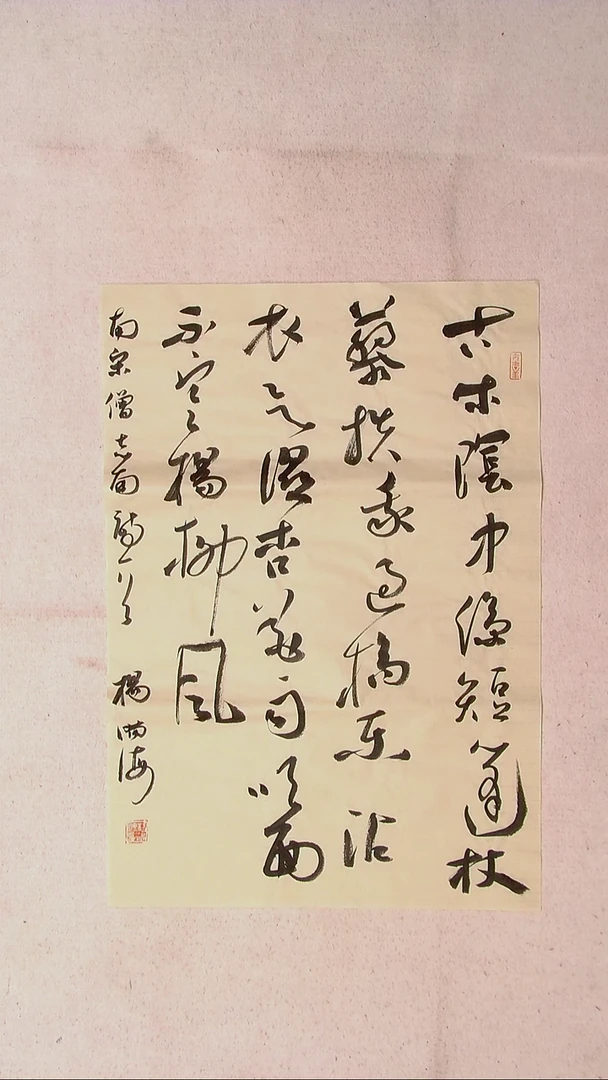 古木陰中係短篷杖
藜扶我過橋東沾
衣欲濕杏花雨吹面
不寒楊柳風
南宋僧志南詩一首 楊海